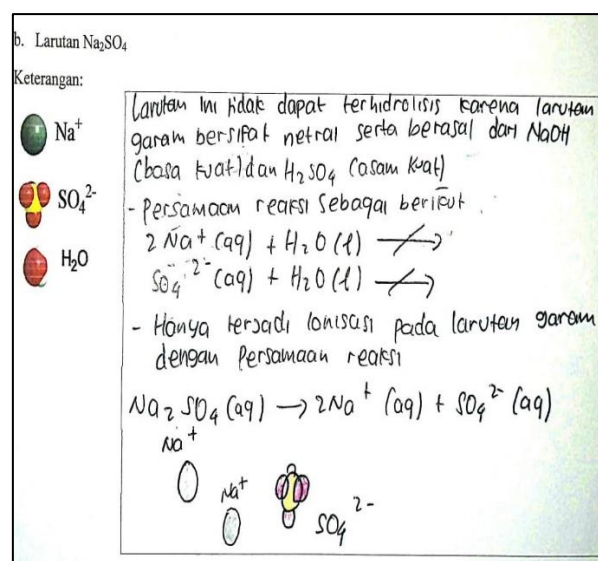 b. Larutan Na₂SO₄
Keterangan:
Na⁺
SO₄²⁻
H₂O
Larutan ini tidak dapat terhidrolisis karena larutan
garam bersifat netral serta berasal dari NaOH
(basa kuat) dan H₂SO₄ (asam kuat)
- Persamaan reaksi sebagai berikut.
2 Na⁺ (aq) + H₂O (l) ↛
SO₄²⁻ (aq) + H₂O (l) ↛
- Hanya terjadi ionisasi pada larutan garam
dengan Persamaan reaksi
Na₂SO₄ (aq) → 2Na⁺ (aq) + SO₄²⁻ (aq)
Na⁺
Na⁺
SO₄²⁻